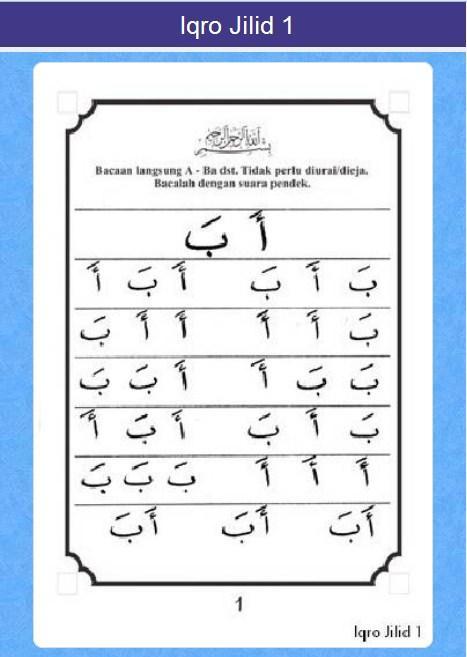 Iqro Jilid 1
بسم الله الرحمن الرحيم
Bacaan langsung A - Ba dst. Tidak perlu diurai/dieja.
Bacalah dengan suara pendek.
أَ بَ
بَ أَ بَ أَ بَ أَ
بَ أَ أَ أَ أَ بَ
بَ بَ أَ أَ بَ بَ
بَ أَ بَ أَ بَ أَ
أَ أَ أَ بَ بَ بَ
أَبَ أَبَ أَبَ
1
Iqro Jilid 1